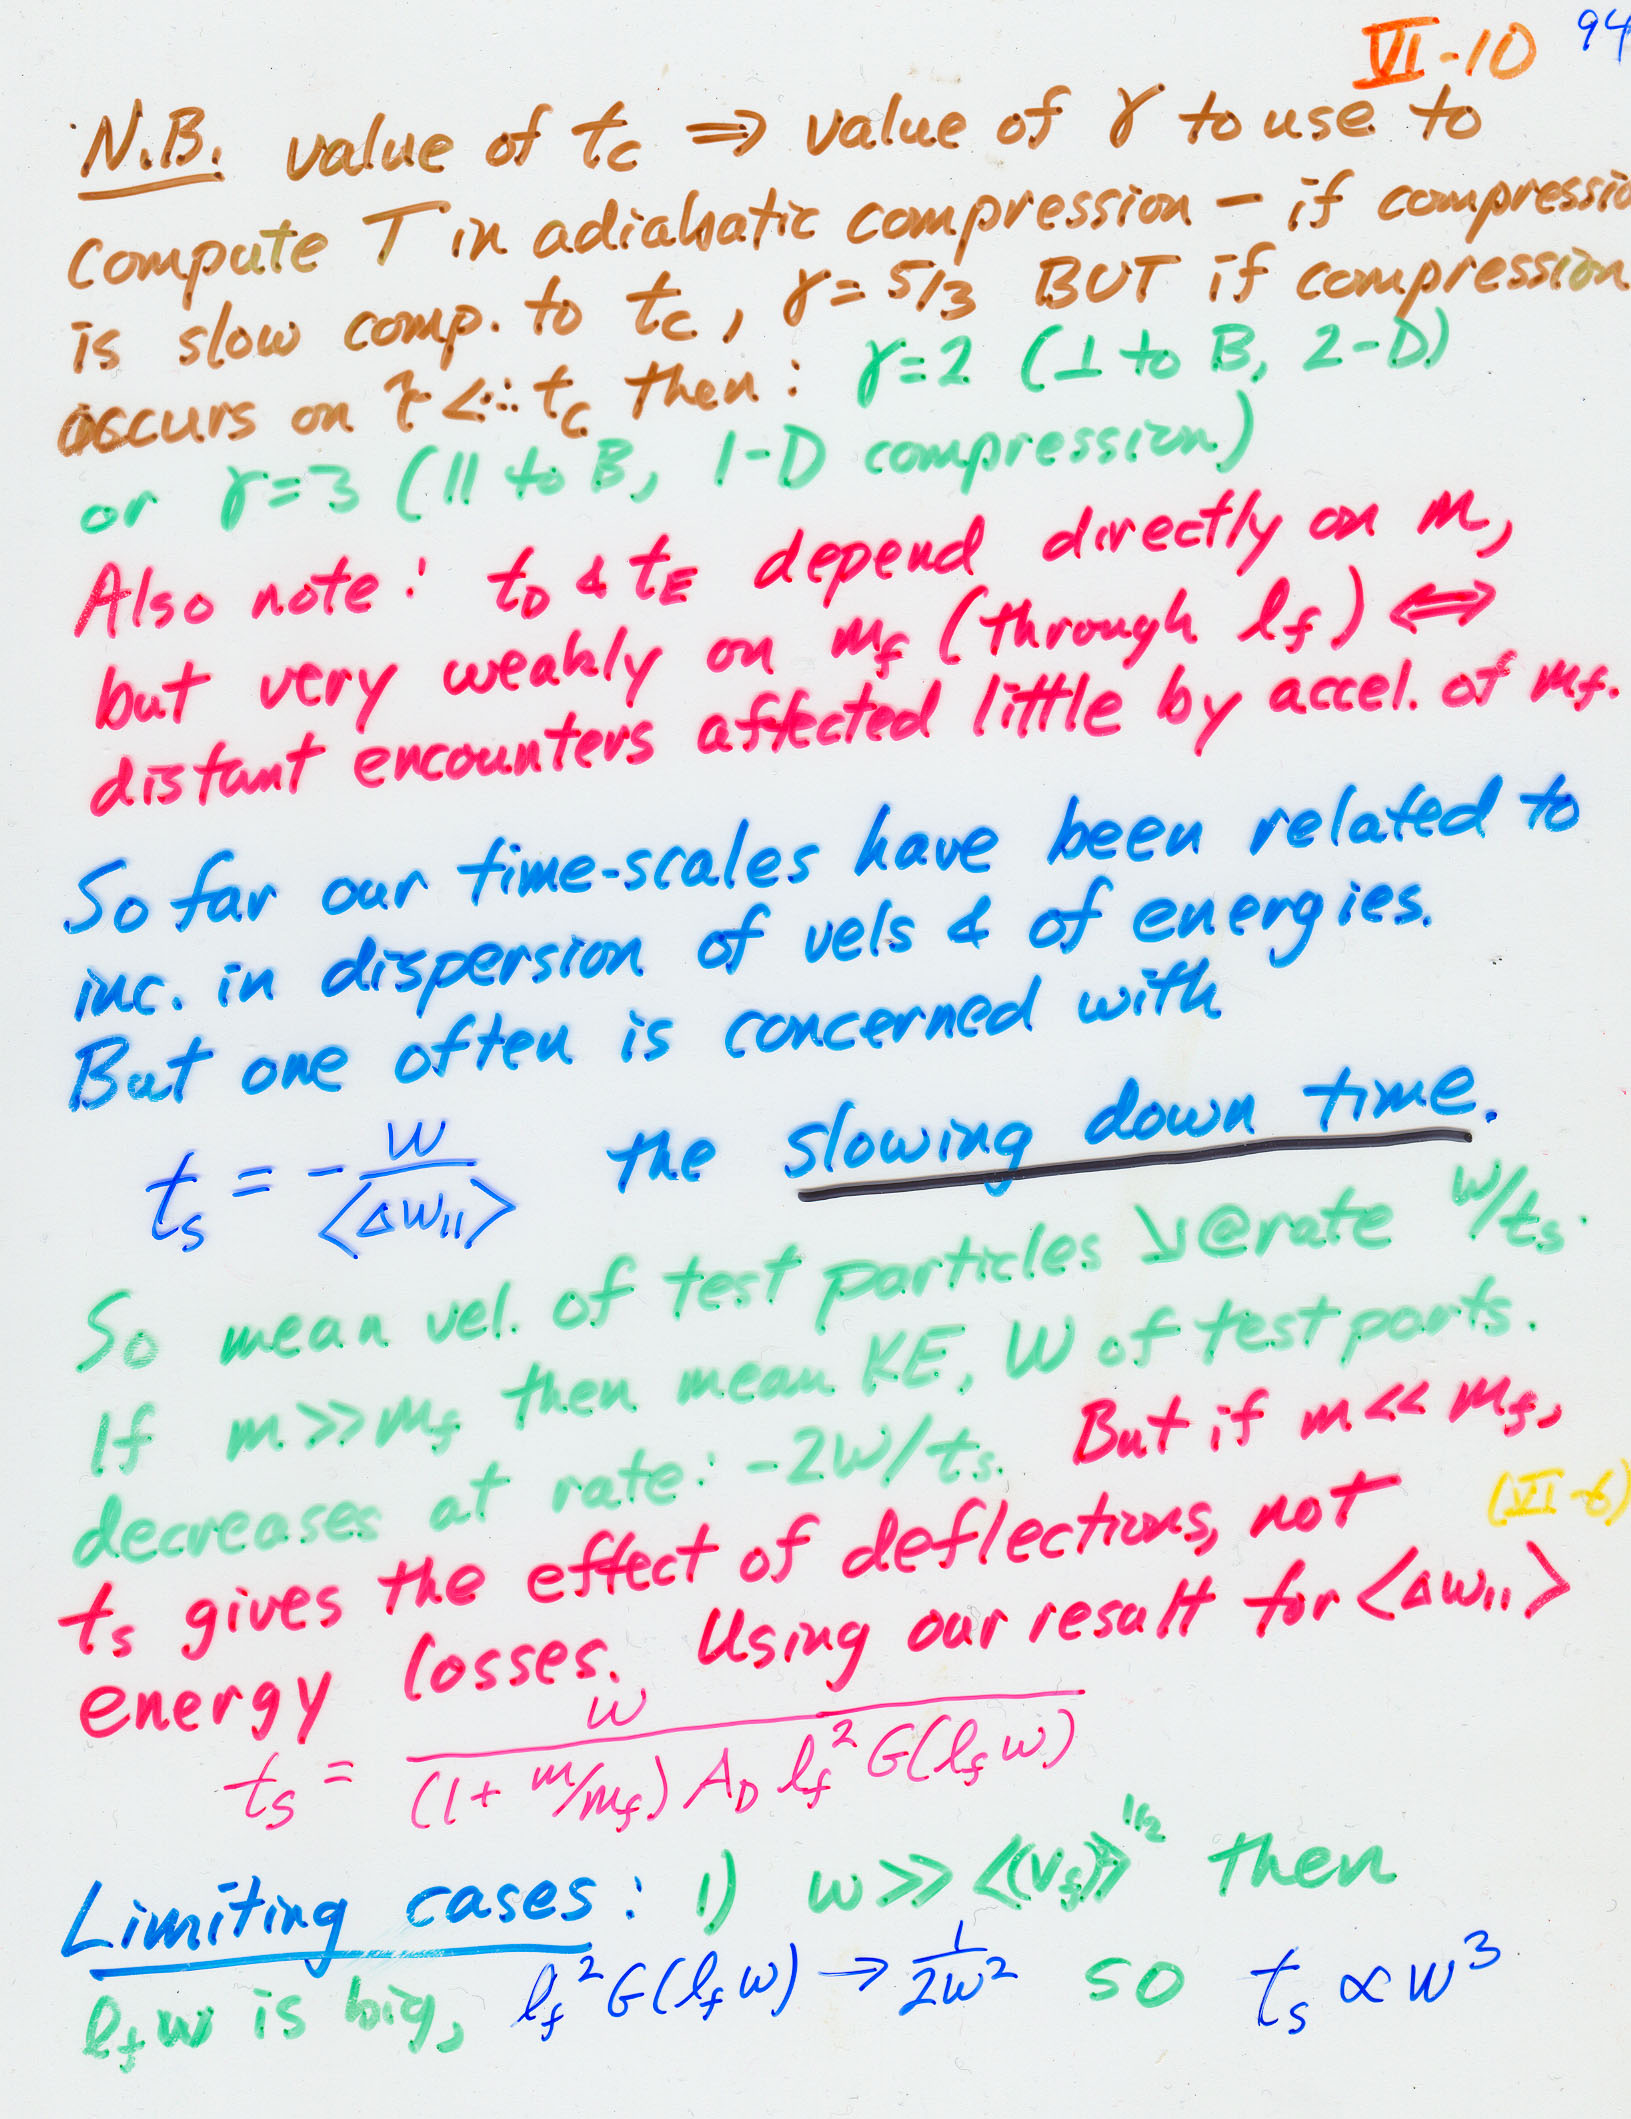 VI-10 94
N.B. value of t_c ⇒ value of γ to use to
compute T in adiabatic compression – if compressio
is slow comp. to t_c, γ = 5/3 BUT if compression
occurs on τ << t_c then: γ=2 (⊥ to B, 2-D)
or γ=3 (|| to B, 1-D compression)
Also note: t_D & t_E depend directly on m,
but very weakly on m_f (through l_f) ⇔
distant encounters affected little by accel. of m_f.
So far our time-scales have been related to
inc. in dispersion of vels & of energies.
But one often is concerned with
t_s = - w/⟨Δw_||⟩ the slowing down time.
So mean vel. of test particles ↘ @ rate w/t_s.
If m >> m_f then mean KE, W of test parts.
decreases at rate: -2W/t_s. But if m << m_f,
t_s gives the effect of deflections, not (VI-6)
energy losses. Using our result for ⟨Δw_||⟩
t_s = w/((1 + m/m_f) A_D l_f² G(l_f w))
Limiting cases: 1) w >> ⟨(v_f)⟩^1/2 then
l_f w is big, l_f² G(l_f w) → 1/2w² so t_s ∝ w³